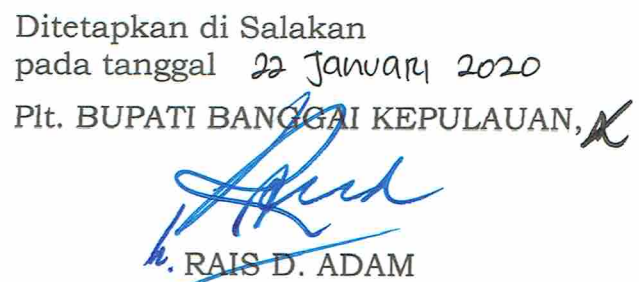 Ditetapkan di Salakan
pada tanggal 22 Januari 2020
Plt. BUPATI BANGGAI KEPULAUAN,
h. RAIS D. ADAM